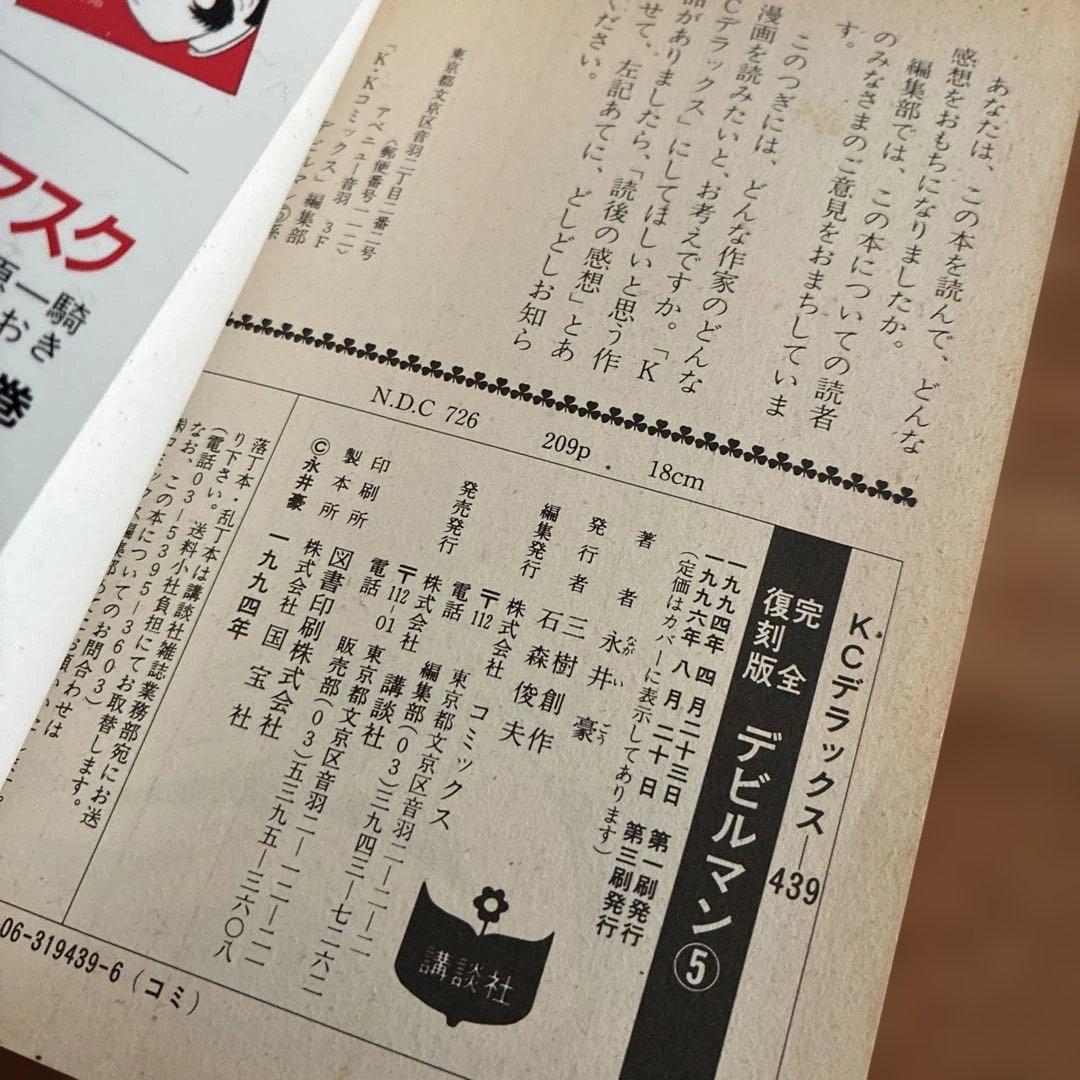 あなたは、この本を読んで、どんな
感想をおもちになりましたか。
編集部では、この本についての読者
のみなさまのご意見をおまちしていま
す。
このつぎには、どんな作家のどんな
漫画を読みたいと、お考えですか。「K
Cデラックス」にしてほしいと思う作
品がありましたら、「読後の感想」とあ
せて、左記あてに、どしどしお知ら
ください。
東京都文京区音羽二丁目二番二号
〈郵便番号一一二〉
アベニュー音羽 3F
「K・Kコミックス」編集部
係
N.D.C 726 209p 18cm
KCデラックス—439
完全
復刻版 デビルマン⑤
一九九四年 四月二十三日 第一刷発行
一九九六年 八月二十日 第三刷発行
(定価はカバーに表示してあります)
著者 永井豪
なが い ごう
発行者 三樹創作
編集発行 石森俊夫
株式会社 コミックス
〒112 東京都文京区音羽二—二—二
電話 編集部(03)三九四三—七二六二
発売発行 株式会社 講談社
〒112-01 東京都文京区音羽二—一二—二一
電話 販売部(03)五三九五—三六〇八
印刷所 図書印刷株式会社
製本所 株式会社 国宝社
©永井豪 一九九四年
落丁本・乱丁本は講談社雑誌業務部宛にお送
り下さい。送料小社負担にてお取替します。
(電話03-5395-3603)
なお、この本についてのお問合わせは
講談社
06-319439-6 (コミ)
スク
原一騎
おき
巻